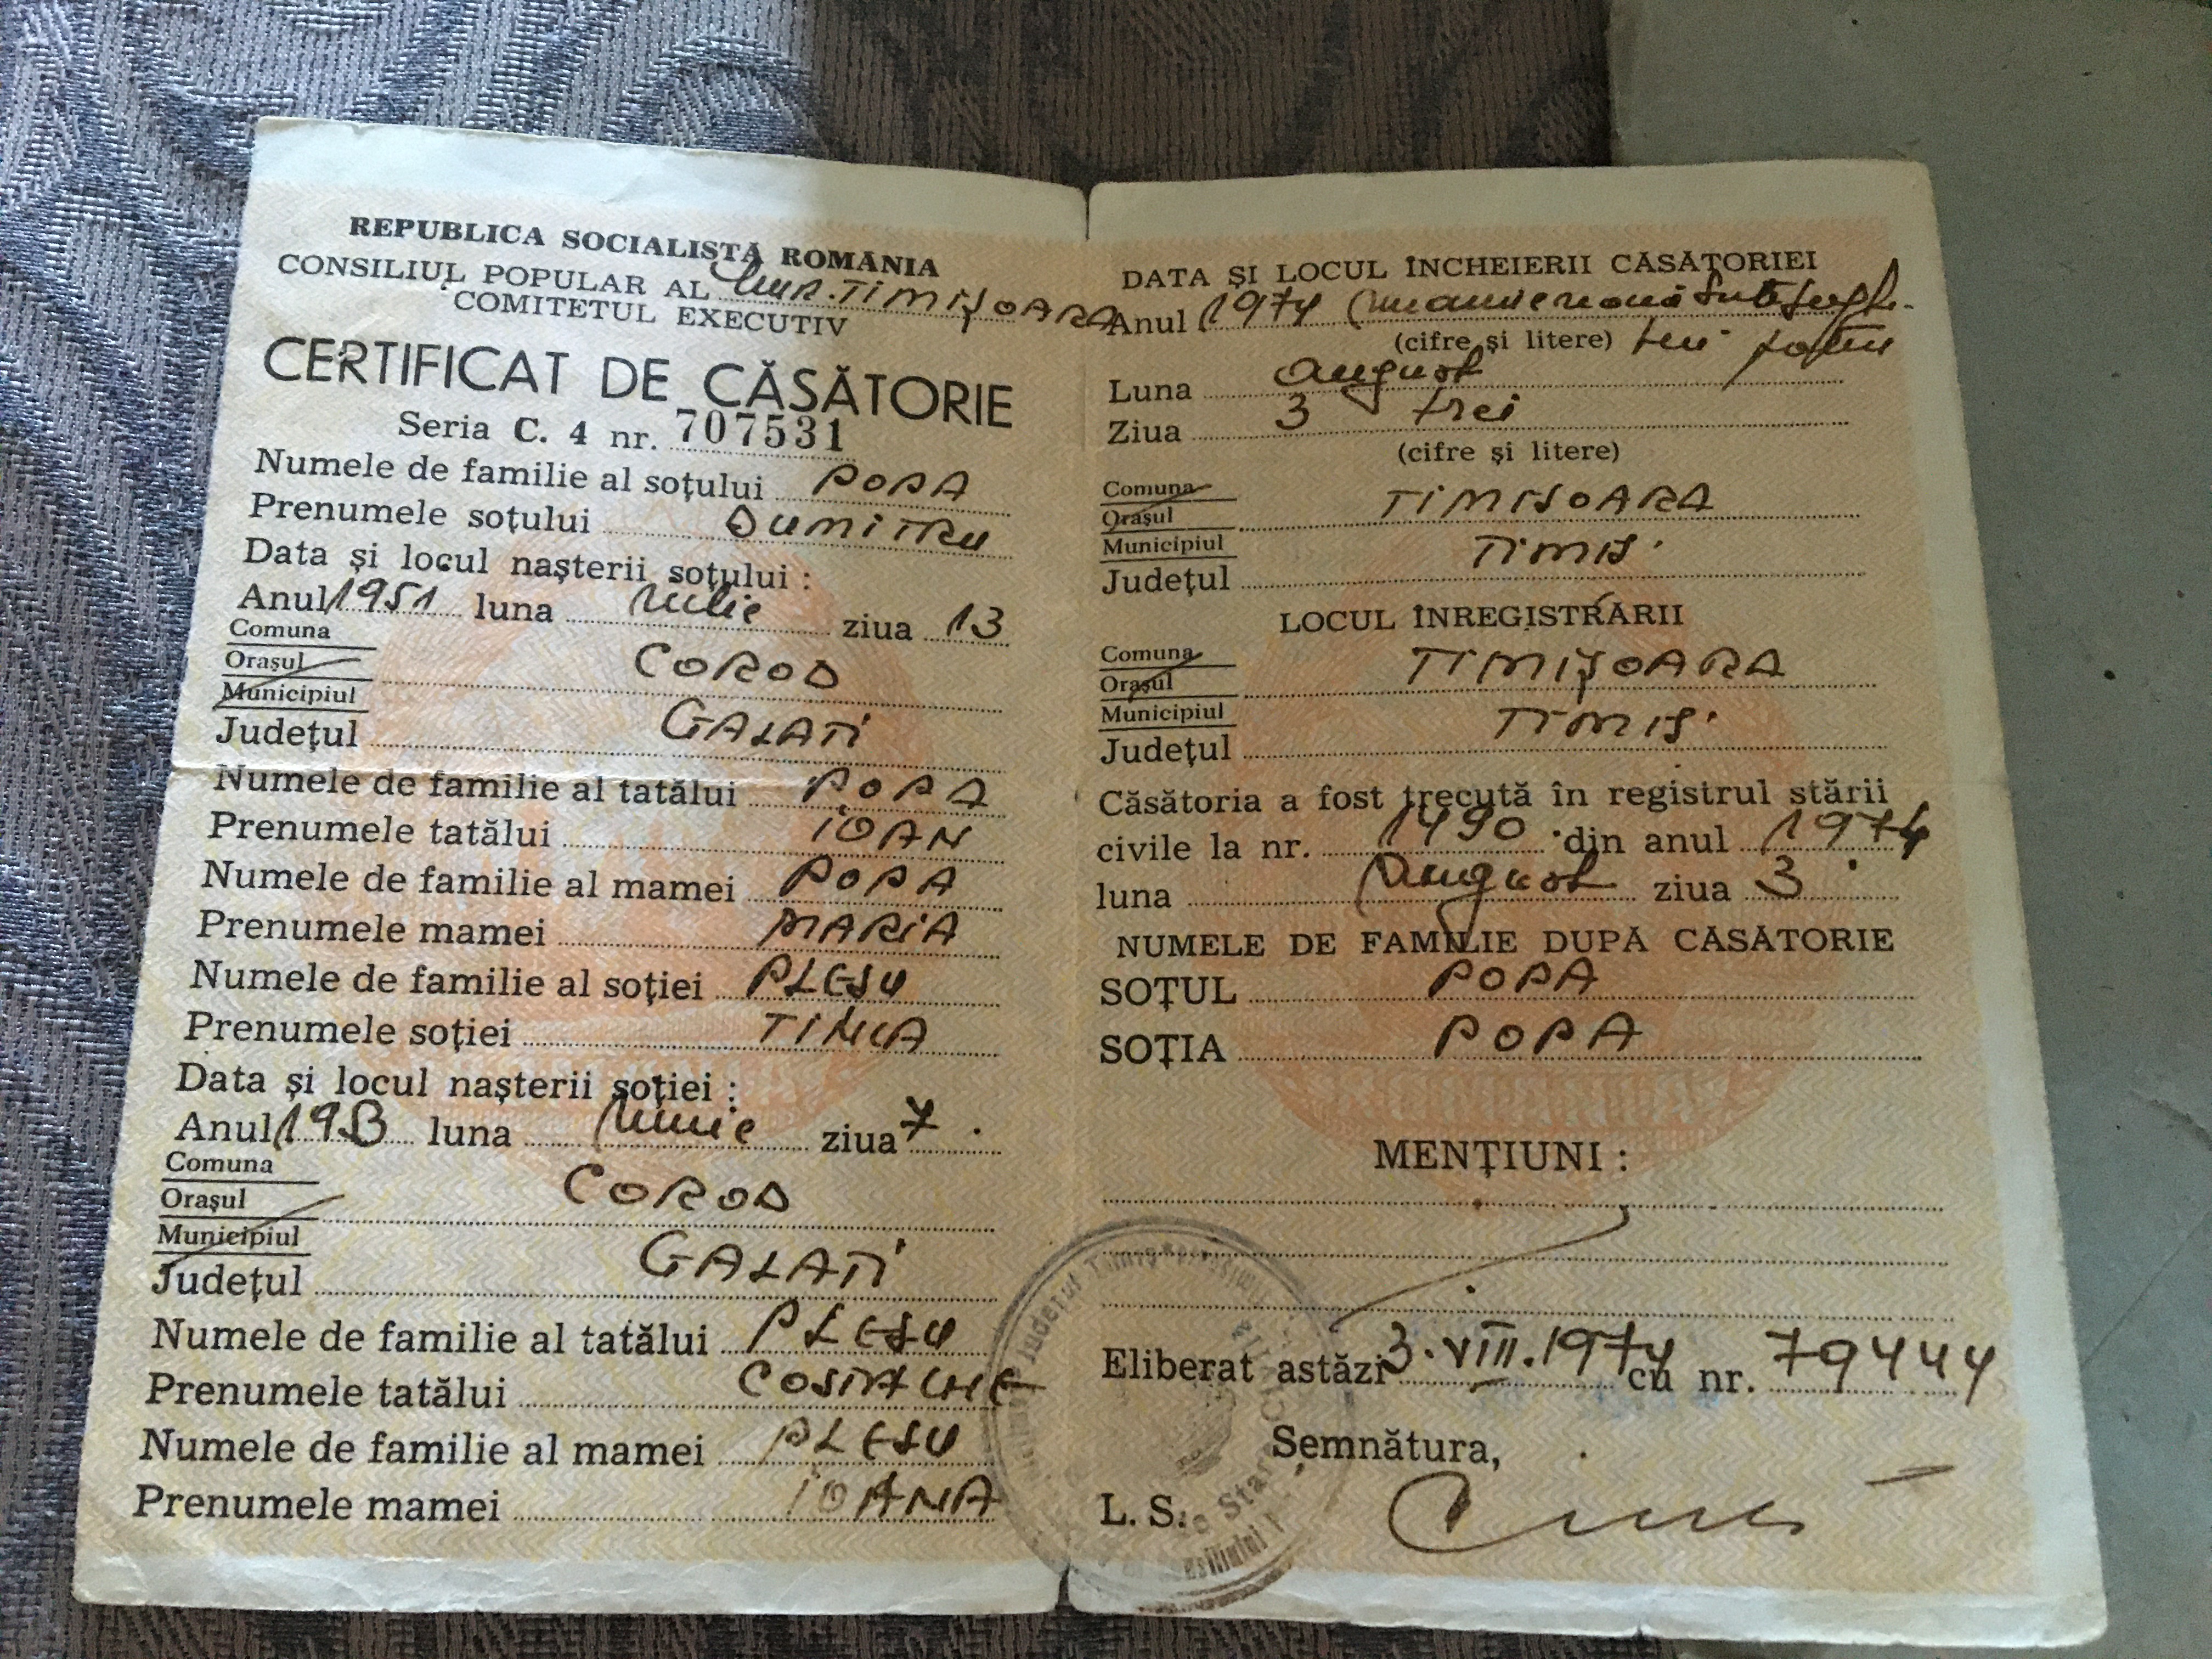 REPUBLICA SOCIALISTĂ ROMÂNIA
CONSILIUL POPULAR AL MUN. TIMIȘOARA
COMITETUL EXECUTIV
CERTIFICAT DE CĂSĂTORIE
Seria C. 4 nr. 707531
Numele de familie al soțului POPA
Prenumele soțului DUMITRU
Data și locul nașterii soțului :
Anul 1951 luna iulie ziua 13
Comuna
Orașul COROD
Municipiul
Județul GALATI
Numele de familie al tatălui POPA
Prenumele tatălui IOAN
Numele de familie al mamei POPA
Prenumele mamei MARIA
Numele de familie al soției PLESU
Prenumele soției TINCA
Data și locul nașterii soției :
Anul 1953 luna iunie ziua 7
Comuna
Orașul COROD
Municipiul
Județul GALATI
Numele de familie al tatălui PLESU
Prenumele tatălui COSTACHE
Numele de familie al mamei PLESU
Prenumele mamei IOANA
DATA ȘI LOCUL ÎNCHEIERII CĂSĂTORIEI
Anul 1974 una mie nouă sute șapte-
(cifre și litere) zeci patru
Luna august
Ziua 3 trei
(cifre și litere)
Comuna
Orașul TIMISOARA
Municipiul
Județul TIMIS
LOCUL ÎNREGISTRĂRII
Comuna
Orașul TIMIȘOARA
Municipiul
Județul TIMIS
Căsătoria a fost trecută în registrul stării
civile la nr. 1490 din anul 1974
luna August ziua 3
NUMELE DE FAMILIE DUPĂ CĂSĂTORIE
SOȚUL POPA
SOȚIA POPA
MENȚIUNI :
Eliberat astăzi 3.VIII.1974 cu nr. 79444
Semnătura,
L. S.
Județul Timiș